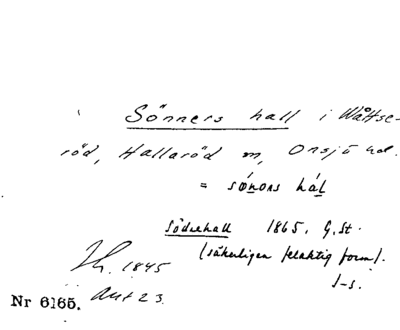 Sönners hall i Wåttse-
röd, Hallaröd sn, Onsjö hd.
= sónors hál
Söderhall 1865. G. St.
(säkerligen felaktig form).
J-s.
1845
Ant 23
Nr 6165.